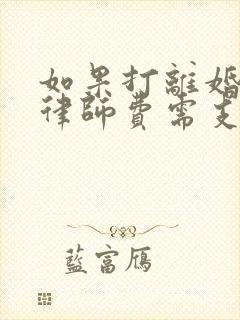 如果打離婚
律師費需支
藍富鴈